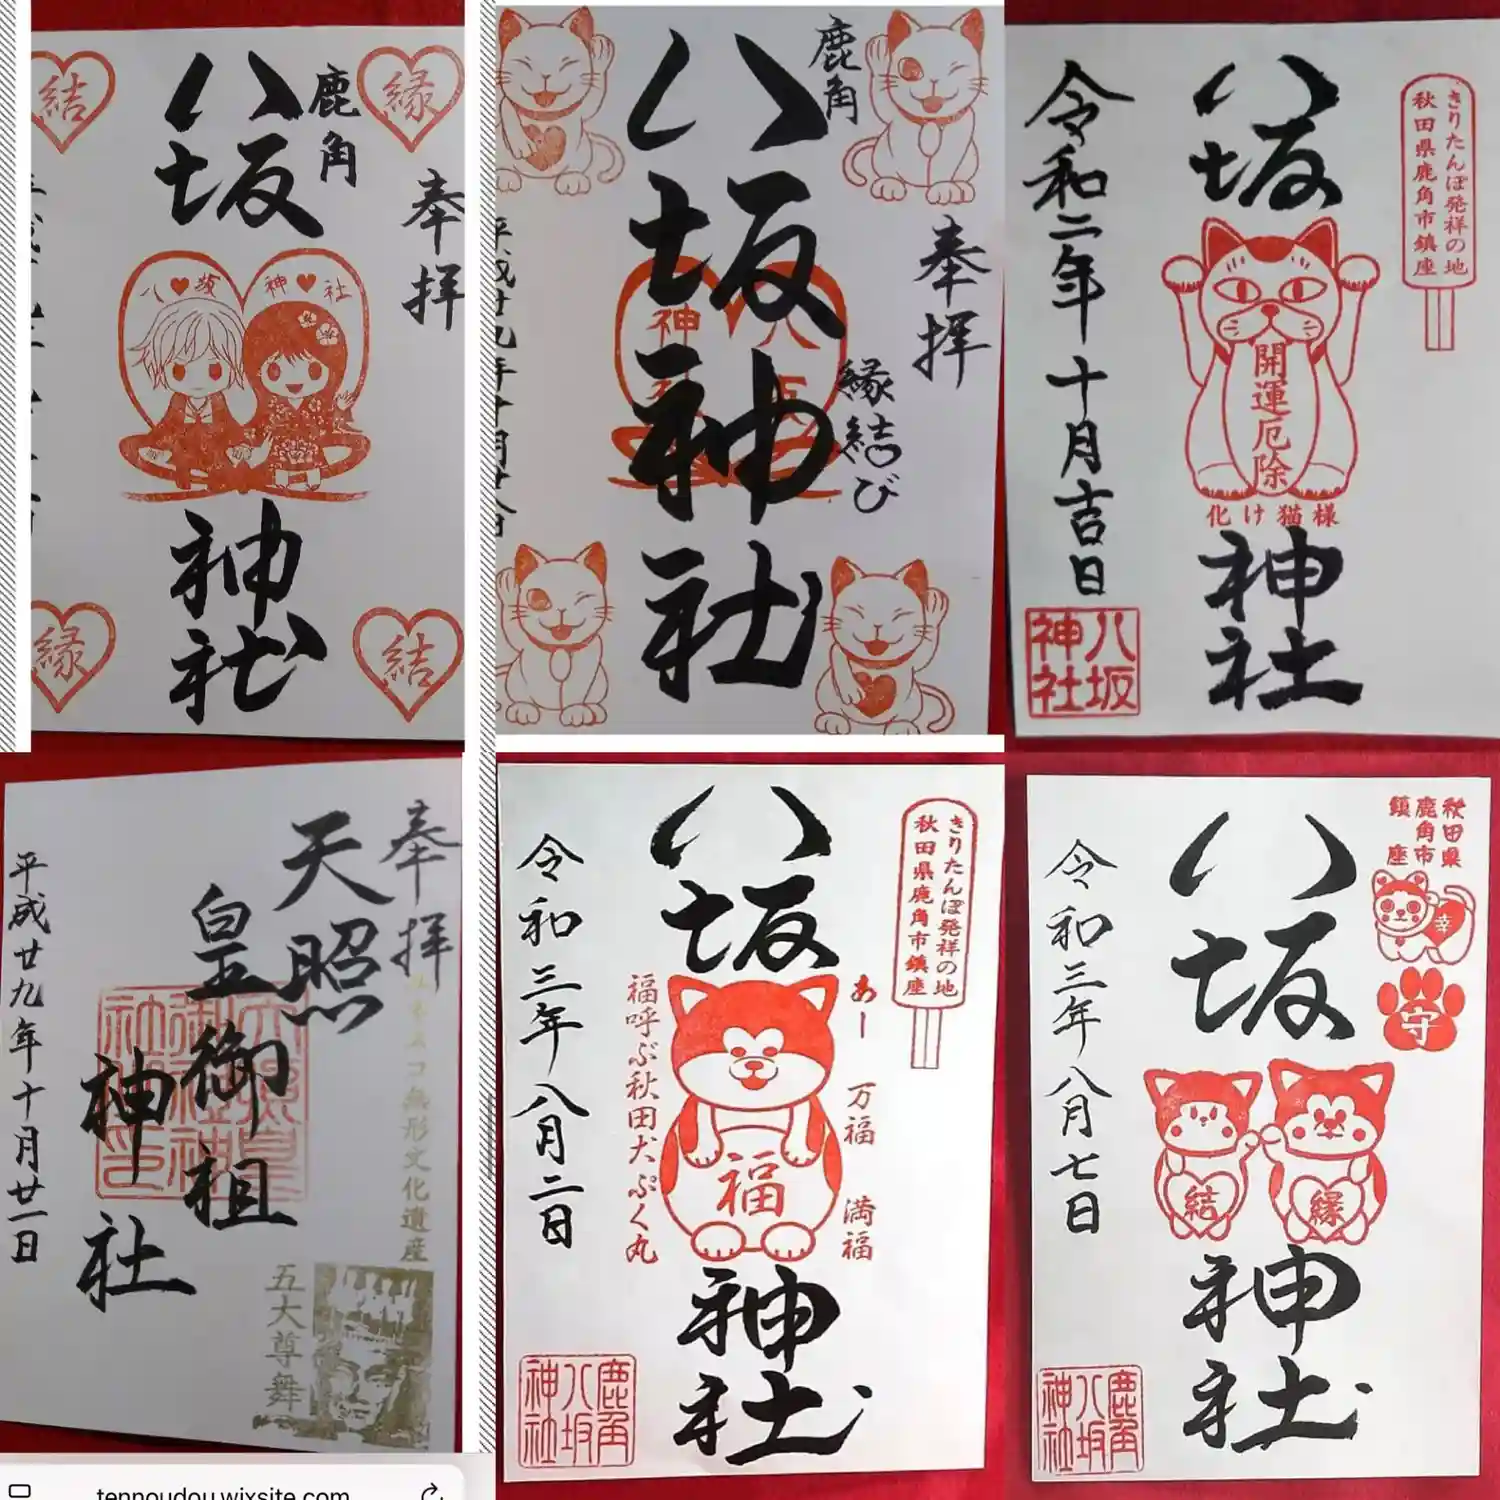 奉拝
鹿角
八坂
神社
縁
結
八♥坂
神♥社
縁
結
奉拝
鹿角
八坂神社
縁結び
平成廿九年十月廿八日
きりたんぽ発祥の地
秋田県鹿角市鎮座
八坂
神社
開運厄除
化け猫様
令和二年十月吉日
八坂
神社
奉拝
天照
皇御祖
神社
平成廿九年十月廿一日
無形文化遺産
五大尊舞
tennoudou.wixsite.com
きりたんぽ発祥の地
秋田県鹿角市鎮座
八坂
神社
あー
万福
満福
福
福呼ぶ秋田犬ぷく丸
令和三年八月二日
鹿角
八坂
神社
秋田県
鹿角市
鎮座
幸
守
八坂
神社
結
縁
令和三年八月七日
鹿角
八坂
神社